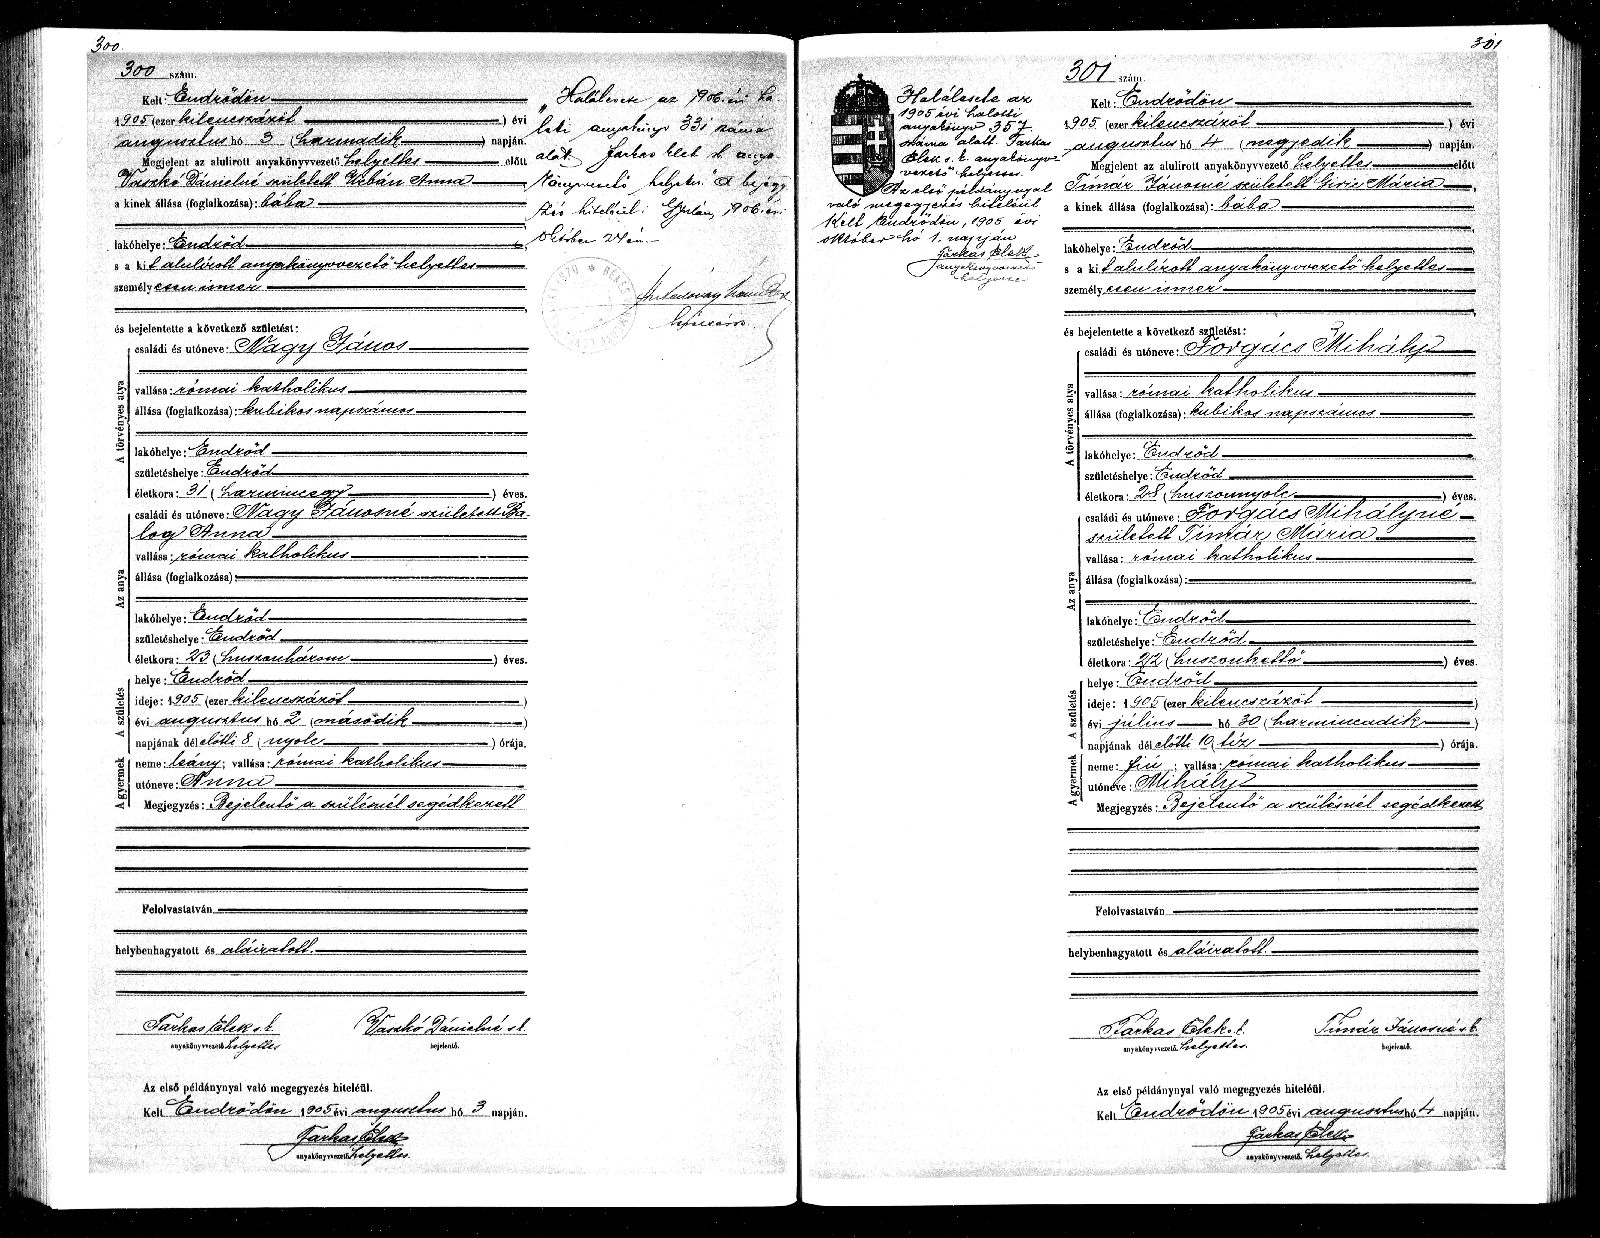 300
300 szám.
Kelt: Endrődön
1905 (ezer kilencszázöt) évi
augusztus hó 3 (harmadik) napján.
Megjelent az alulirott anyakönyvvezető helyettes előtt
Vaszkó Dánielné született Urbán Anna
a kinek állása (foglalkozása): bába
lakóhelye: Endrőd
s a kit alulírott anyakönyvvezető helyettes
személyesen ismer
és bejelentette a következő születést:
A törvényes atya
családi és utóneve: Nagy János
vallása: római katholikus
állása (foglalkozása): kubikos napszámos
lakóhelye: Endrőd
születéshelye: Endrőd
életkora: 31 (harmincegy) éves.
Az anya
családi és utóneve: Nagy Jánosné született Ba-
log Anna
vallása: római katholikus
állása (foglalkozása):
lakóhelye: Endrőd
születéshelye: Endrőd
életkora: 23 (huszonhárom) éves.
A születés
helye: Endrőd
ideje: 1905 (ezer kilencszázöt)
évi augusztus hó 2 (második)
napjának dél előtti 8 (nyolc) órája.
A gyermek
neme: leány; vallása: római katholikus
utóneve: Anna
Megjegyzés: Bejelentő a szülésnél segédkezett
Felolvastatván
helybenhagyatott és aláiratott.
Farkas Elek s.k. Vaszkó Dánielné sk.
anyakönyvvezető helyettes bejelentő.
Az első példánynyal való megegyezés hiteléül.
Kelt Endrődön 1905 évi augusztus hó 3 napján.
Farkas Elek
anyakönyvvezető helyettes.
"Halálesete az 1906. évi ha-
lotti anyakönyv 331 száma
alatt. Farkas Elek sk anya-
könyvvezető helyettes." A bejegy
zés hiteléül: Gyulán, 1906. évi
október 24 én.
301
301 szám.
Kelt: Endrődön
1905 (ezer kilencszázöt) évi
augusztus hó 4 (negyedik) napján.
Megjelent az alulirott anyakönyvvezető helyettes előtt
Tímár Jánosné született Mária
a kinek állása (foglalkozása): bába
lakóhelye: Endrőd
s a kit alulírott anyakönyvvezető helyettes
személyesen ismer
és bejelentette a következő születést:
A törvényes atya
családi és utóneve: Forgács Mihály
vallása: római katholikus
állása (foglalkozása): kubikos napszámos
lakóhelye: Endrőd
születéshelye: Endrőd
életkora: 28 (huszonnyolc) éves.
Az anya
családi és utóneve: Forgács Mihályné
született Tímár Mária
vallása: római katholikus
állása (foglalkozása):
lakóhelye: Endrőd
születéshelye: Endrőd
életkora: 22 (huszonkettő) éves.
A születés
helye: Endrőd
ideje: 1905 (ezer kilencszázöt)
évi július hó 30 (harmincadik)
napjának dél előtti 10 (tíz) órája.
A gyermek
neme: fiú; vallása: római katholikus
utóneve: Mihály
Megjegyzés: Bejelentő a szülésnél segédkezett
Felolvastatván
helybenhagyatott és aláiratott.
Farkas Elek s.k. Tímár Jánosné sk.
anyakönyvvezető helyettes. bejelentő.
Az első példánynyal való megegyezés hiteléül.
Kelt Endrődön 1905 évi augusztus hó 4 napján.
Farkas Elek
anyakönyvvezető helyettes.
Halálesete az
1905 évi halotti
anyakönyv 357
száma alatt. Farkas
Elek s.k. anyakönyv
vezető helyettes.
Az első példánynyal
való megegyezés hiteléül
Kelt, Endrődön, 1905 évi
október hó 1. napján
Farkas Elek
anyakönyvvezető
helyettes